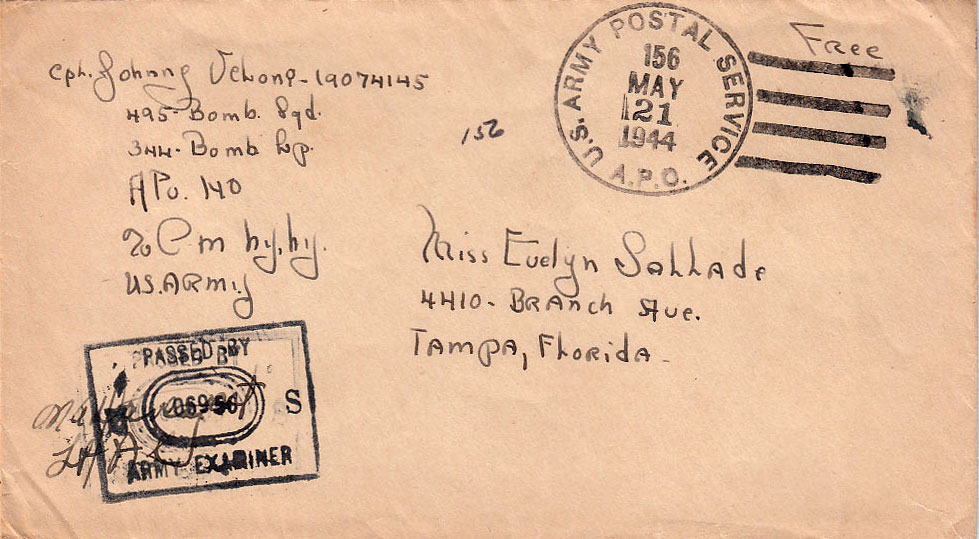 Cpl. Johnny Velong - 19074145
495 - Bomb. Sqd.
344 - Bomb Gp.
APO. 140
% P m ny, ny.
U.S. ARMy
156
U.S. ARMY POSTAL SERVICE
A.P.O.
156
MAY
21
1944
Free
Miss Evelyn Sallade
4410 - BRAnch Ave.
TAMPA, Florida -
PASSED BY
S
ARMY EXAMINER